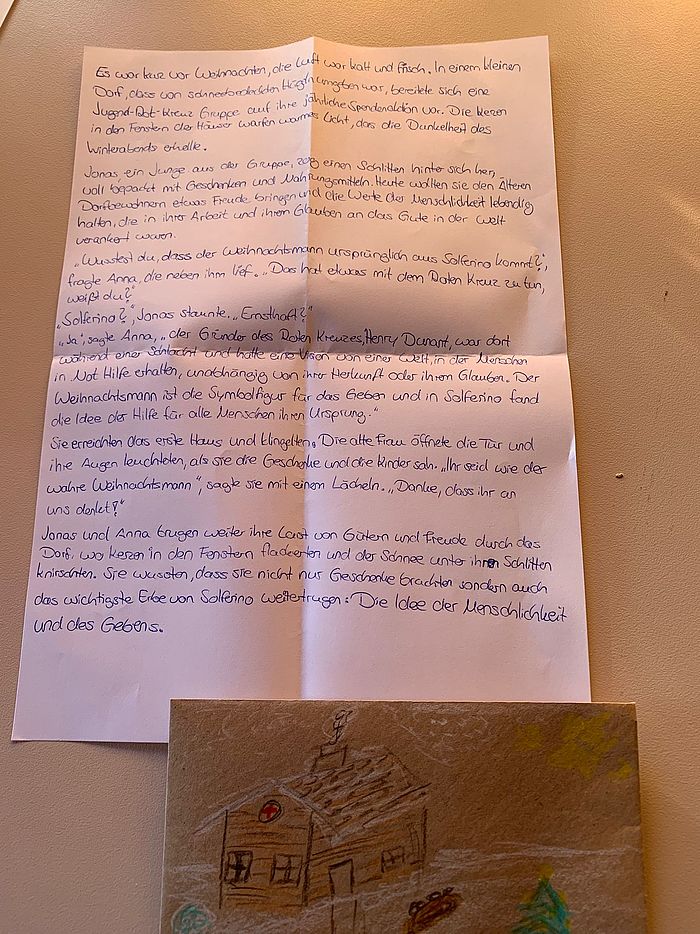 Es war kurz vor Weihnachten, die Luft war kalt und frisch. In einem kleinen
Dorf, dass von schneebedeckten Hügeln umgeben war, bereitete sich eine
Jugend-Rot-Kreuz Gruppe auf ihre jährliche Spendenaktion vor. Die Kerzen
in den Fenstern der Häuser warfen warmes Licht, das die Dunkelheit des
Winterabends erhellte.
Jonas ein Junge aus der Gruppe, zog einen Schlitten hinter sich her,
voll bepackt mit Geschenken und Nahrungsmitteln. Heute wollten sie den Älteren
Dorfbewohnern etwas Freude bringen und die Werte der Menschlichkeit lebendig
halten, die in ihrer Arbeit und ihrem Glauben an das Gute in der Welt
verankert waren.
„Wusstest du, dass der Weihnachtsmann ursprünglich aus Solferino kommt?",
fragte Anna, die neben ihm lief. „Das hat etwas mit dem Roten Kreuz zu tun,
weißt du?"
„Solferino?", Jonas staunte. „Ernsthaft?"
„Ja", sagte Anna, „der Gründer des Roten Kreuzes, Henry Dunant, war dort
während einer Schlacht und hatte eine Vision von einer Welt, in der Menschen
in Not Hilfe erhalten, unabhängig von ihrer Herkunft oder ihrem Glauben. Der
Weihnachtsmann ist die Symbolfigur für das Geben und in Solferino fand
die Idee der Hilfe für alle Menschen ihren Ursprung."
Sie erreichten das erste Haus und klingelten. Die alte Frau öffnete die Tür und
ihre Augen leuchteten, als sie die Geschenke und die Kinder sah. „Ihr seid wie der
wahre Weihnachtsmann", sagte sie mit einem Lächeln. „Danke, dass ihr an
uns denkt!"
Jonas und Anna trugen weiter ihre Last von Gütern und Freude durch das
Dorf, wo Kerzen in den Fenstern flackerten und der Schnee unter ihren Schlitten
knirschten. Sie wussten, dass sie nicht nur Geschenke brachten sondern auch
das wichtigste Erbe von Solferino weitertrugen: Die Idee der Menschlichkeit
und des Gebens.